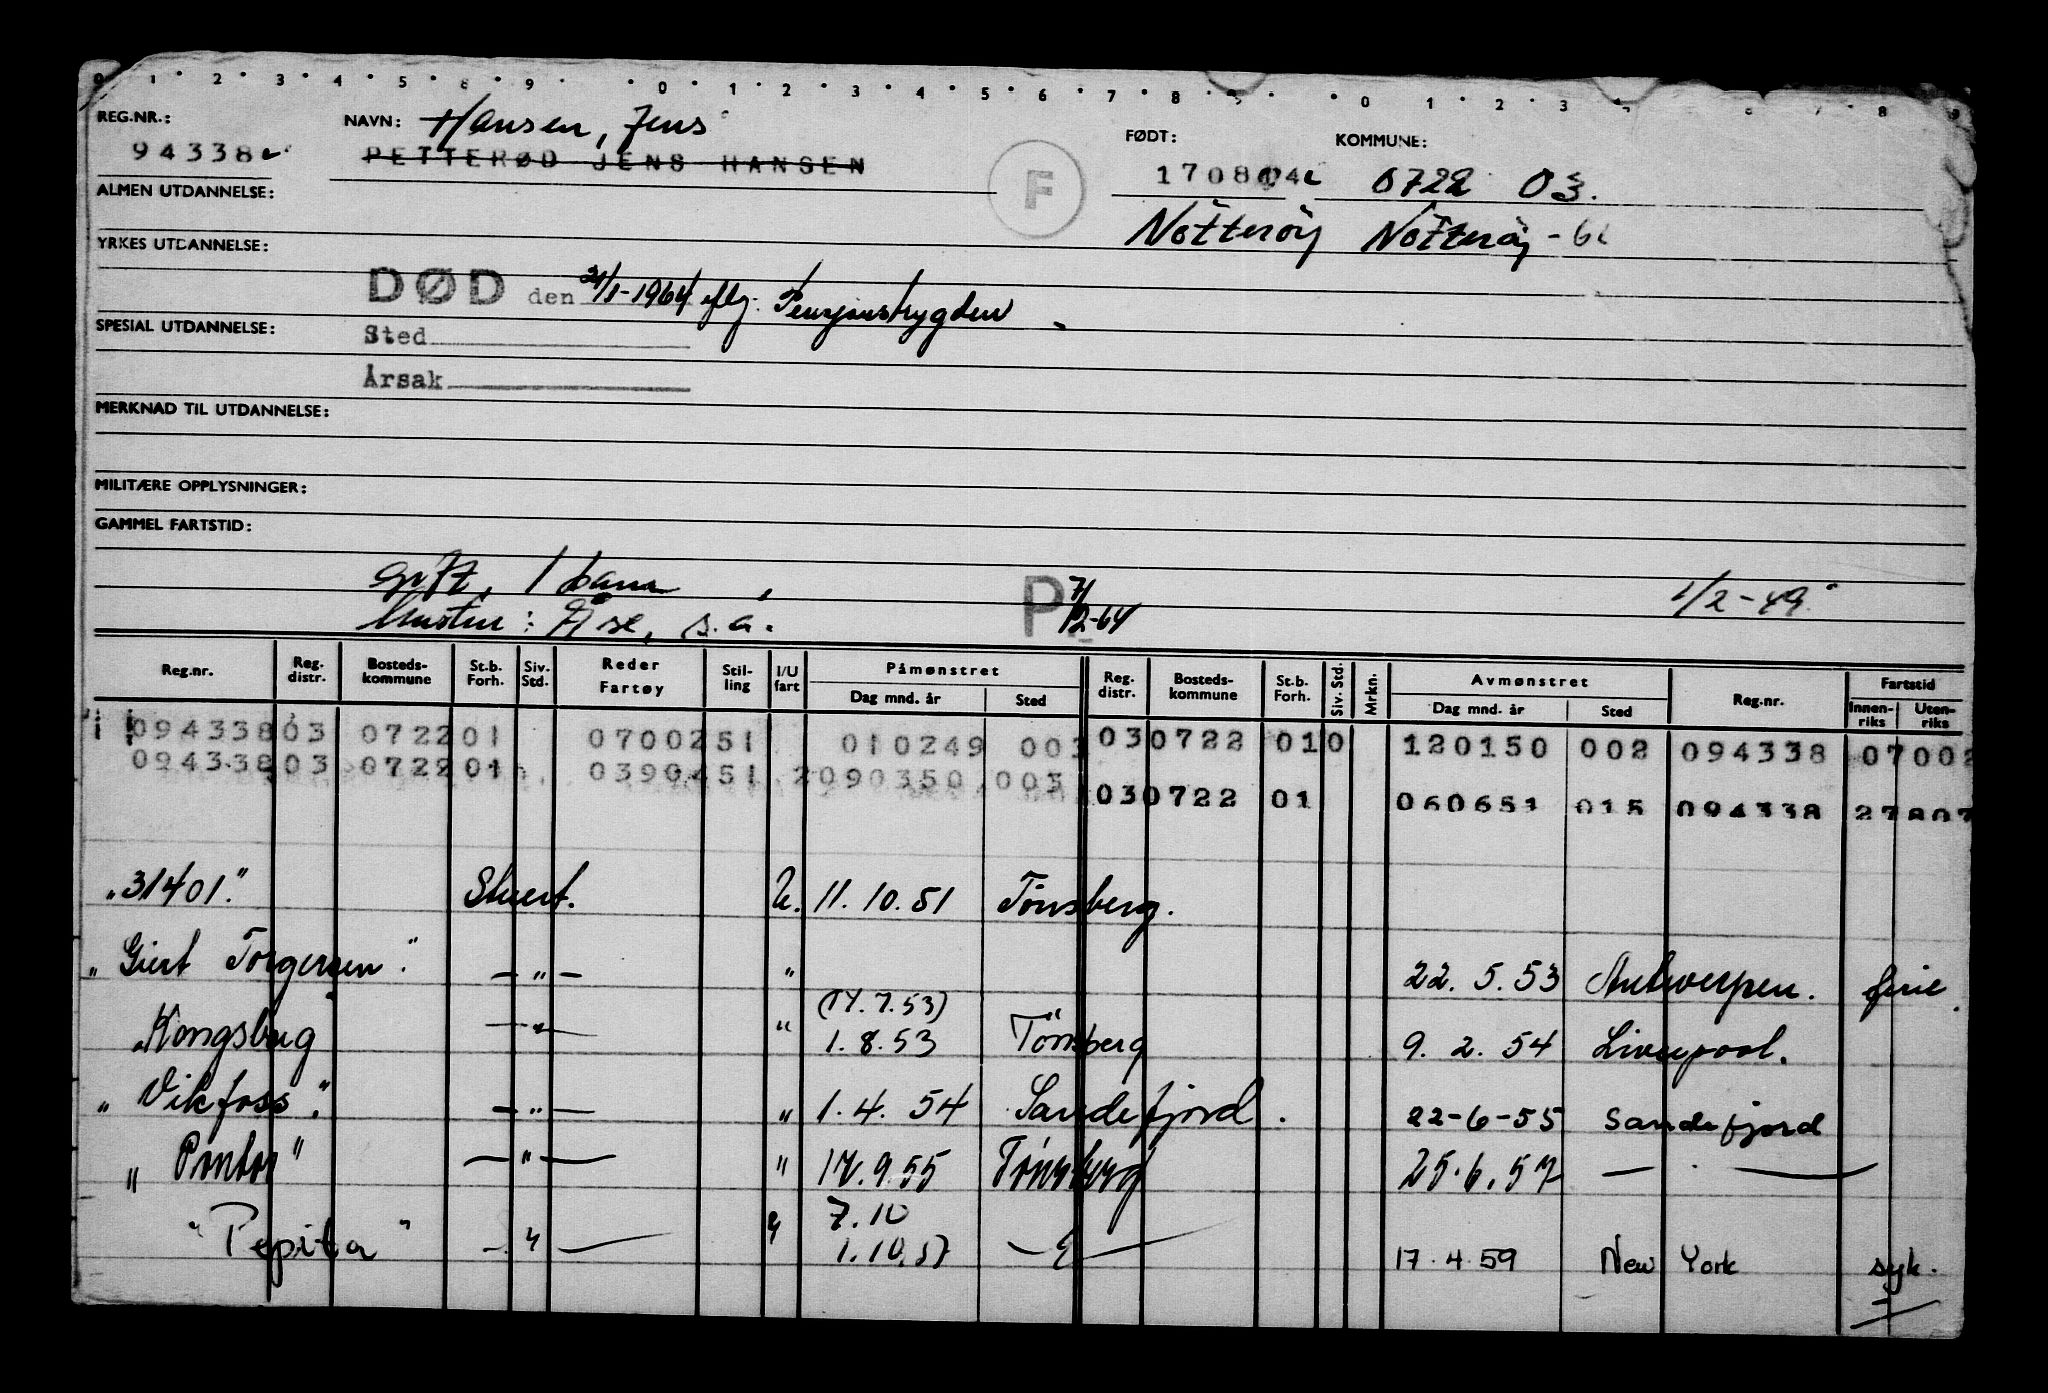 0 1 2 3 4 5 6 9 0 1 2 3 4 5 6 7 8 9 0 1 2 3 6 7 8 9
REG.NR.: NAVN: Hansen, Jens FØDT: KOMMUNE:
94338 PETTERØD JENS HANSEN F 170804 0722 03.
ALMEN UTDANNELSE:
Nøtterøy Nøtterøy
YRKES UTDANNELSE:
DØD den /1-1964 iflg. Pensjonstrygden
SPESIAL UTDANNELSE: Sted
Årsak
MERKNAD TIL UTDANNELSE:
MILITÆRE OPPLYSNINGER:
GAMMEL FARTSTID:
gift, 1 barn P 7/2-64 1/2-49
hustru: Åse, s.a.
Reg.nr. Reg. distr. Bosteds-kommune St.b. Forh. Siv. Std. Reder Fartøy Stil-ling I/U fart Påmønstret Reg. distr. Bosteds-kommune St.b. Forh. Siv. Std. Mrkn. Avmønstret Reg.nr. Fartstid
Dag mnd. år Sted Dag mnd. år Sted Innen-riks Uten-riks
094338 03 0722 01 07002 51 010249 003 03 0722 01 0 120150 002 094338 07002
094338 03 0722 01 03904 51 2 090350 003
03 0722 01 060651 015 094338 27807
"31401." Stuert. U. 11.10.51 Tønsberg.
"Giert Torgersen". — " — " 22.5.53 Antwerpen. ferie.
(17.7.53)
"Kongsberg — " — " 1.8.53 Tönsberg 9.2.54 Liverpool.
"Vikfoss". — " — " 1.4.54 Sandefjord. 22-6-55 Sandefjord
"Pontos" — " — " 17.9.55 Tønsberg 25.6.57 — . —
7.10
"Pepita" — " — " 1.10.57 — " — 17.4.59 New York syk.